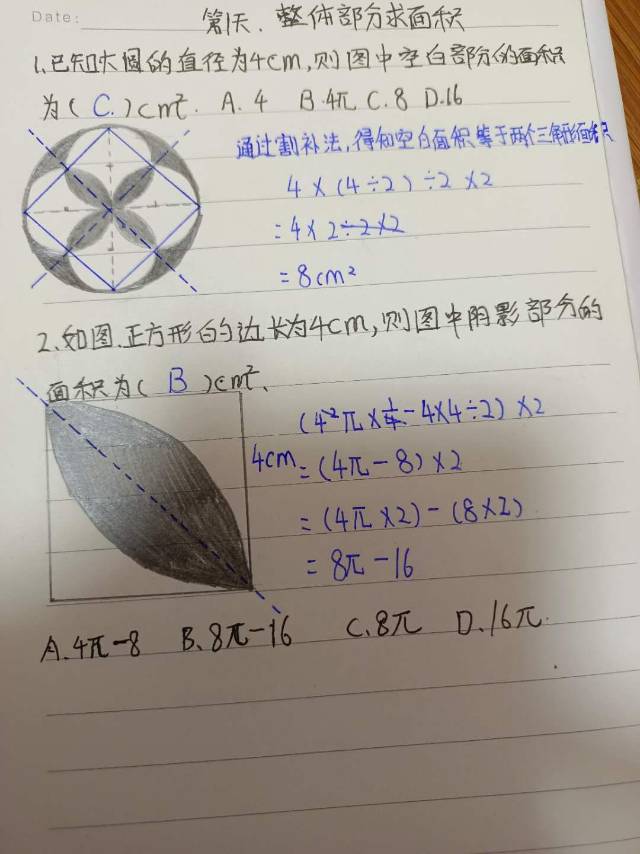 Date:
第1天.整体部分求面积
1.已知大圆的直径为4cm,则图中空白部分的面积
为(C.)cm². A.4 B.4π C.8 D.16
通过割补法,得知空白面积等于两个三角形面积
4×(4÷2)÷2×2
=4×2÷2×2
=8cm²
2.如图.正方形的边长为4cm,则图中阴影部分的
面积为(B)cm².
(4²π×1/4-4×4÷2)×2
4cm
=(4π-8)×2
=(4π×2)-(8×2)
=8π-16
A.4π-8 B.8π-16 C.8π D.16π.